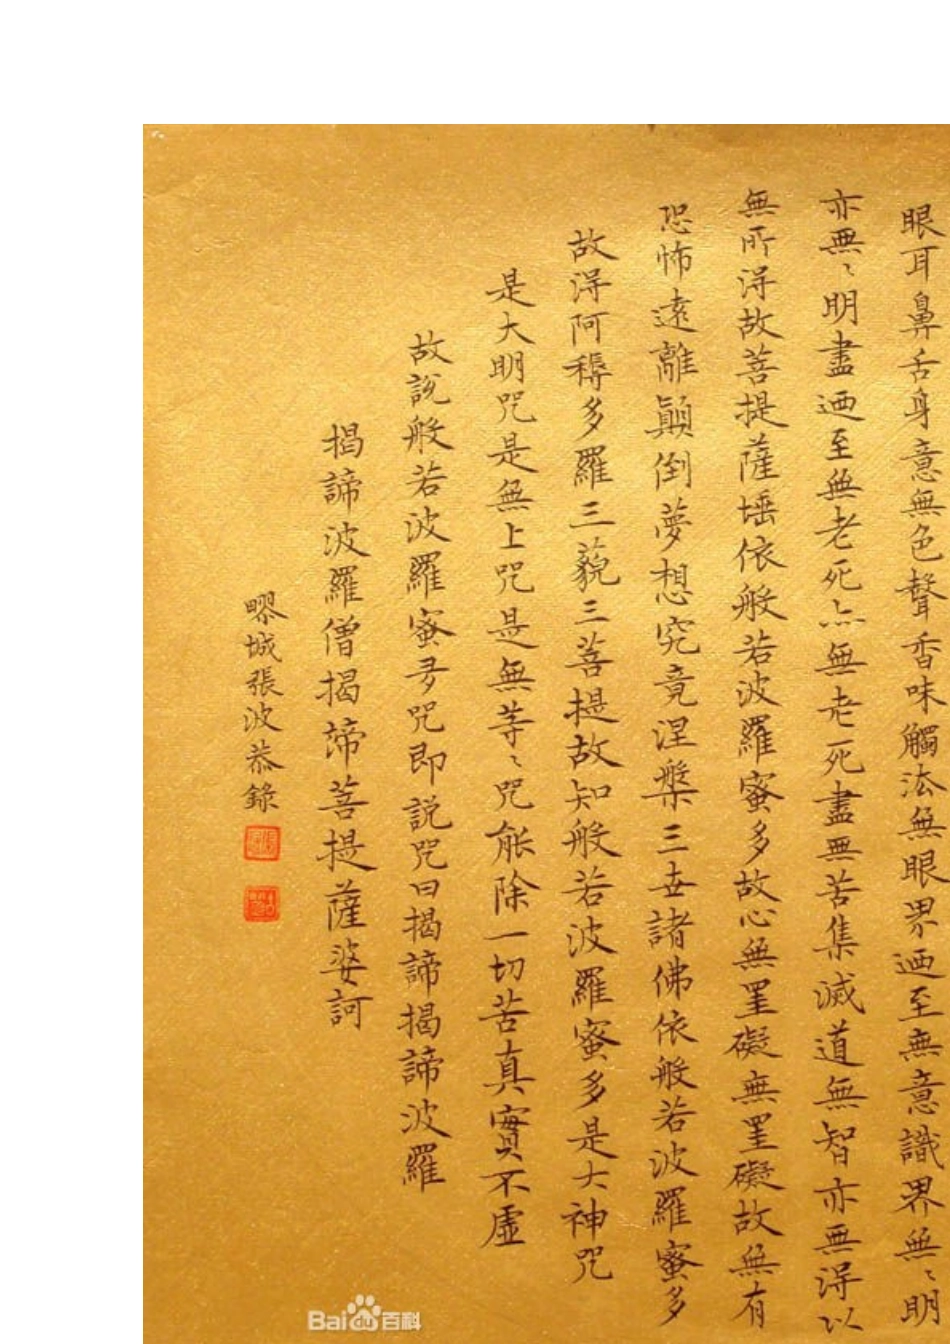 眼耳鼻舌身意無色聲香味觸法無眼界廼至無意識界無〻明
亦無〻明盡廼至無老死亦無老死盡無苦集滅道無智亦無得以
無所得故菩提薩埵依般若波羅蜜多故心無罣礙無罣礙故無有
恐怖遠離顛倒夢想究竟涅槃三世諸佛依般若波羅蜜多
故得阿耨多羅三藐三菩提故知般若波羅蜜多是大神咒
是大明咒是無上咒是無等〻咒能除一切苦真實不虛
故說般若波羅蜜多咒即說咒曰揭諦揭諦波羅
揭諦波羅僧揭諦菩提薩婆訶
疁城張波恭錄
Baidu百科